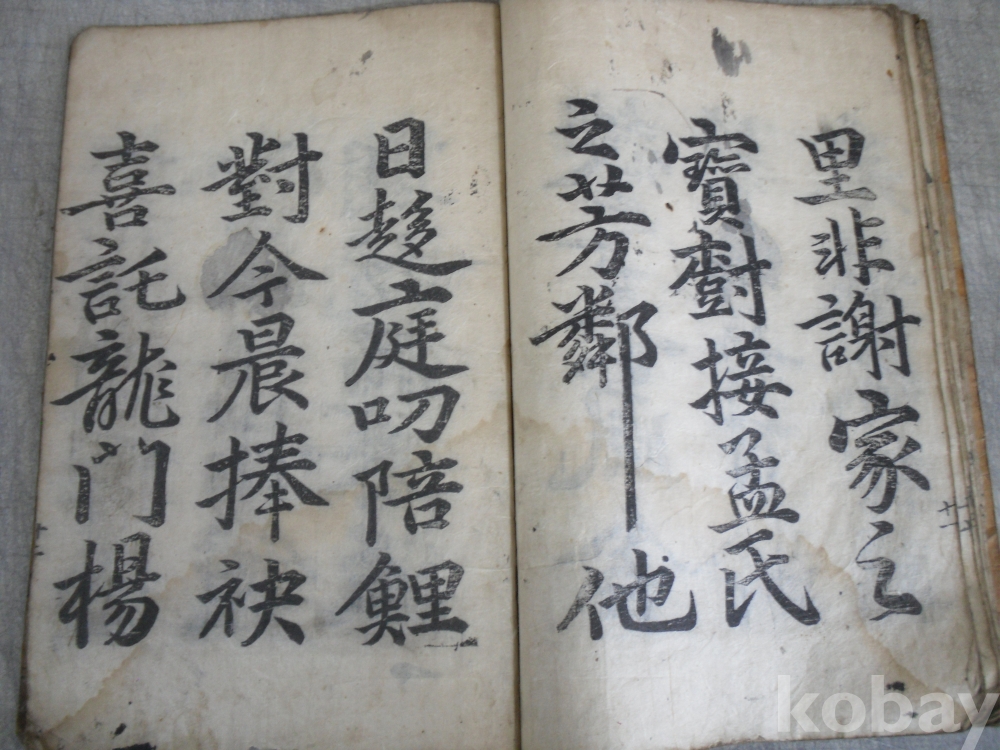 里非謝家之
寶樹接孟氏
之芳鄰他
日趍庭叨陪鯉
對今晨捧袂
喜託龍門楊
kobay